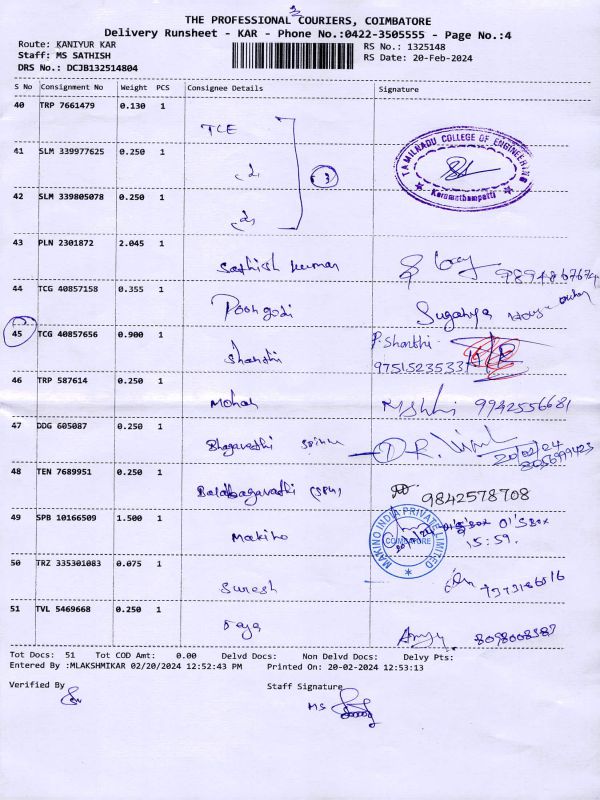 THE PROFESSIONAL COURIERS, COIMBATORE
Delivery Runsheet - KAR - Phone No.:0422-3505555 - Page No.:4
Route: KANIYUR KAR
RS No.: 1325148
Staff: MS SATHISH
RS Date: 20-Feb-2024
DRS No.: DCJB132514804
S No Consignment No Weight PCS Consignee Details Signature
40 TRP 7661479 0.130 1
TCE
TAMILNADU COLLEGE OF ENGINEERING
Karumathampatti
41 SLM 339977625 0.250 1
3
42 SLM 339805078 0.250 1
43 PLN 2301872 2.045 1
Sathish kumar
44 TCG 40857158 0.355 1
Poongodi Suganya
45 TCG 40857656 0.900 1
Shanthi P. Shanthi
9751523533
46 TRP 587614 0.250 1
Mohan 9942556681
47 DDG 605087 0.250 1
Bhagavathi
20/02/24
48 TEN 7689951 0.250 1
9842578708
49 SPB 10166509 1.500 1
Makino
MAKINO INDIA PRIVATE LIMITED
COIMBATORE
01'S Box
15:59.
50 TRZ 335301083 0.075 1
Suresh
51 TVL 5469668 0.250 1
Raja 8098008387
Tot Docs: 51 Tot COD Amt: 0.00 Delvd Docs: Non Delvd Docs: Delvy Pts:
Entered By :MLAKSHMIKAR 02/20/2024 12:52:43 PM Printed On: 20-02-2024 12:53:13
Verified By Staff Signature
MS